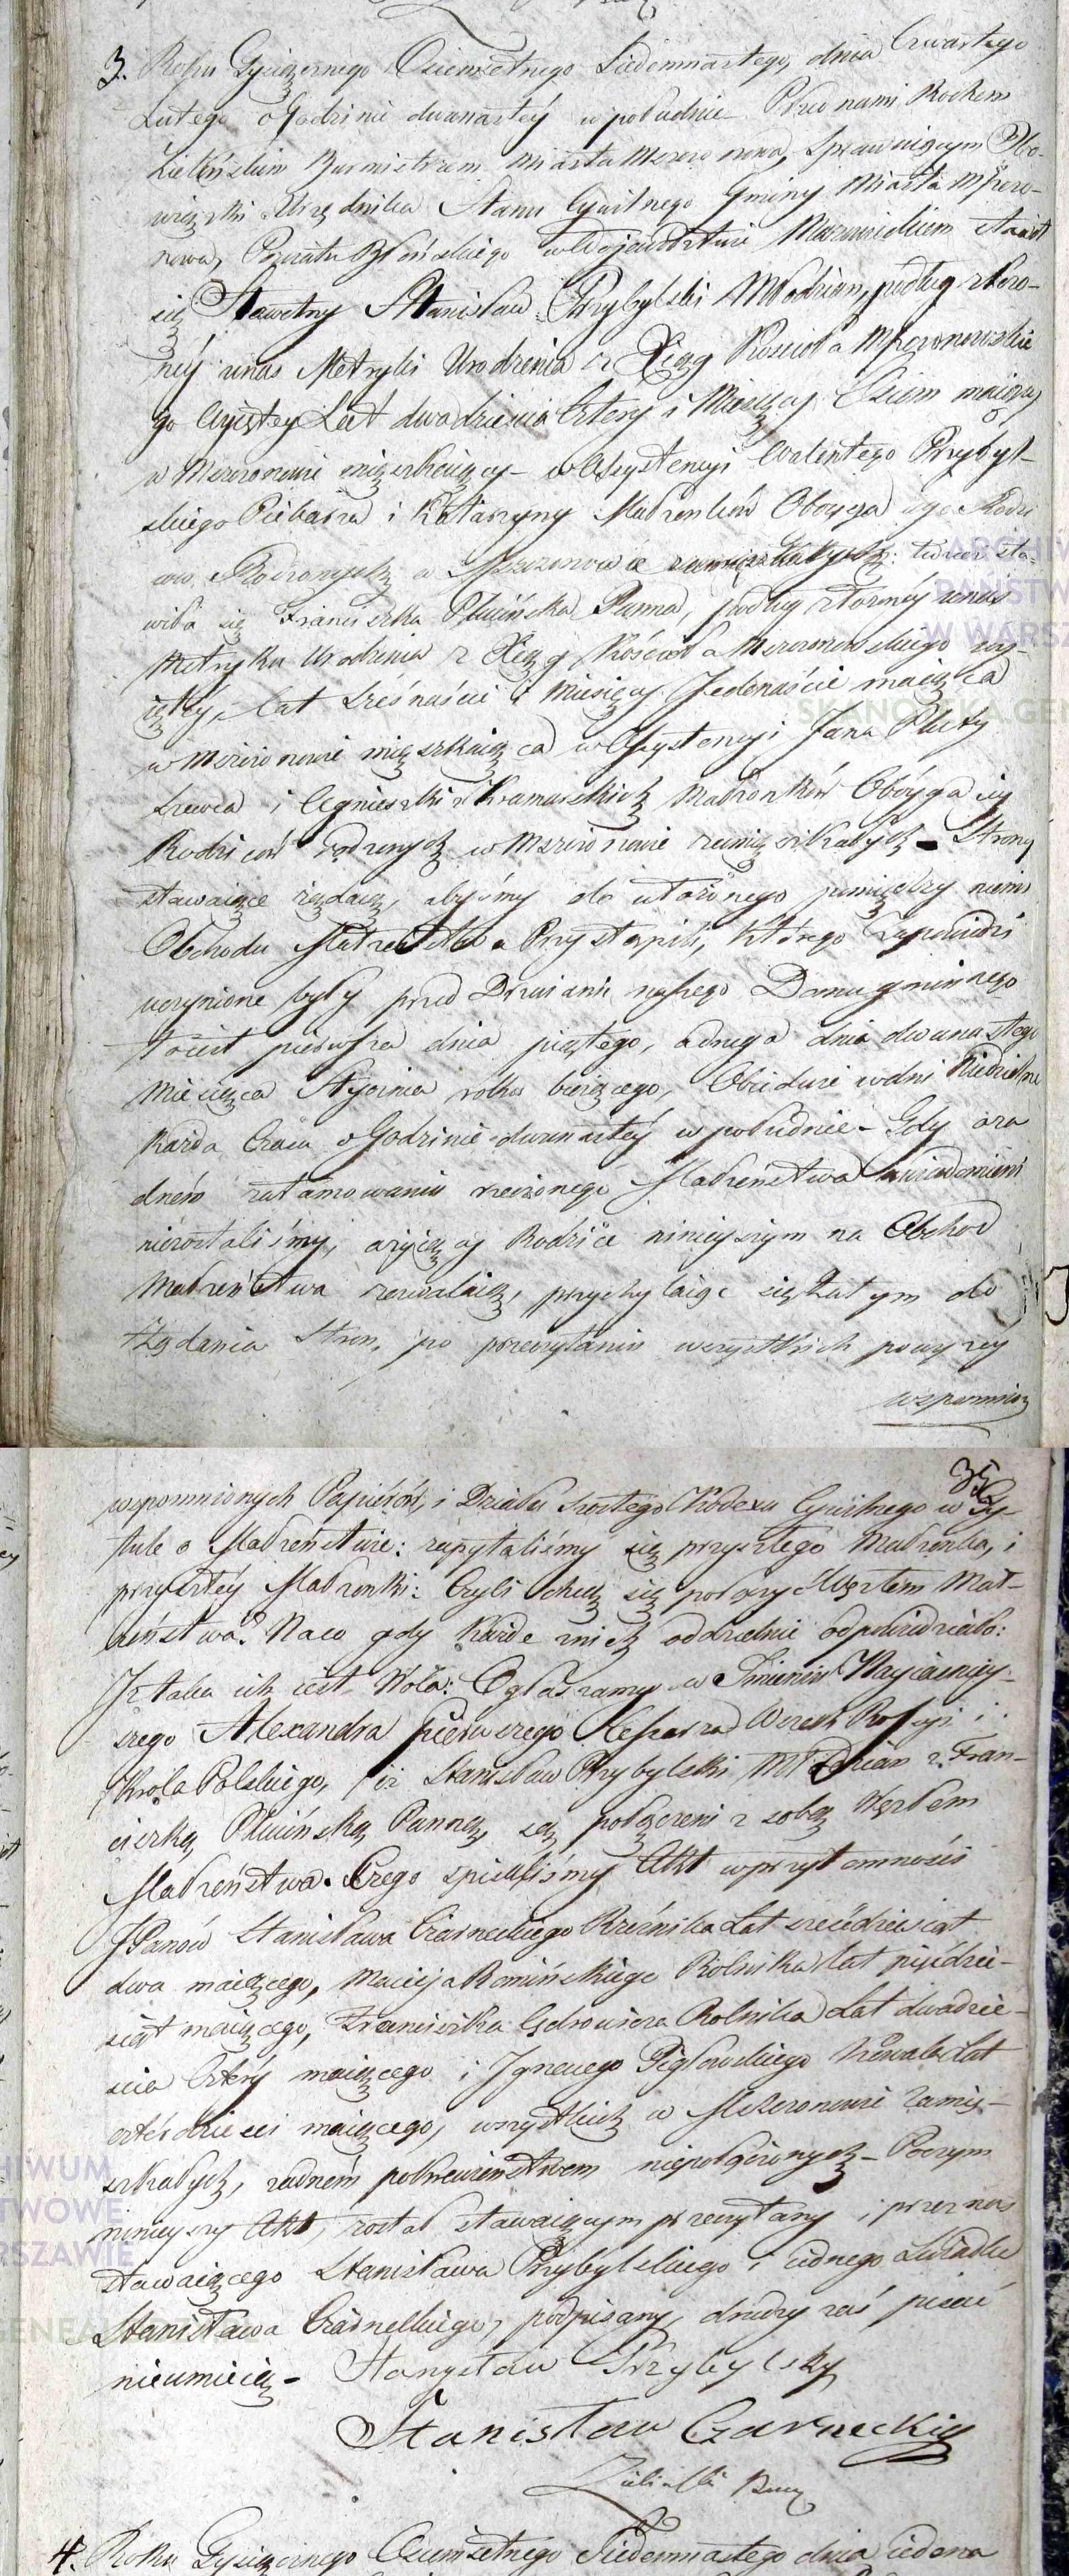 3. Roku Tysiącznego Osiemsetnego Siedemnastego, dnia Czwartego
Lutego o Godzinie dwunastey w południe Przed nami Rochem
Zielińskim Burmistrzem Miasta Mszczonowa, sprawuiącym Obo-
wiązki Urzędnika Stanu Cywilnego Gminy Miasta Mszczo-
nowa, Powiatu Błońskiego w Woiewodztwie Mazowieckiem stawił
się Sławetny Stanisław Przybylski Młodzian, podług złożo-
néy u nas Metryki Urodzenia z Xiąg Kościoła Mszczonowskie
go wyiętey Lat dwadzieścia cztery i Miesięcy Osiem maiący
w Mszczonowie mięszkaiący w Assystencyi Walentego Przybyl-
skiego Piekarza i Katarzyny Małżonków Oboyga iego Rodzi
ców Rodzonych w Mszczonowie zamięszkałych: tudzież sta-
wiła się Franciszka Plucińska Panna, podług złożonéy u nas
Metryki Urodzenia z Xiąg Kościoła Mszczonowskiego wy-
iętéy, lat szesnaście i Miesięcy Jedenaście maiąca
w Mszczonowie mięszkaiąca w Assystencyi Jana Pluty
Szewca i Agnieszki z Kramarskich Małżonków Oboyga iey
Rodziców rodzonych w Mszczonowie zamięszkałych - Strony
stawaiące żądaią, abyśmy do ułożonego pomiędzy niemi
Obchodu Małżeństwa Przystąpili, którego Zapowiedzi
uczynione były przed Drzwiami naszego Domu gminnego
to iest pierwsza dnia piątego, a druga dnia dwunastego
Miesiąca Stycznia roku bieżącego, Obiedwie w dni Niedzielne
każda Czasu o Godzinie dwunastéy w południe - Gdy o ża
dném zatamowaniu rzeczonego Małżeństwa uwiadomieni
niezostaliśmy, a żyiący Rodzice ninieyszym na Obchod
Małżeństwa zezwalaią, przychylaiąc się zatym do
żądania Stron, po przeczytaniu wszystkich powyżey
wspomnio
35
wspomnionych Papierów, i Działu szóstego Kodexu Cywilnego w Ty-
tule o Małżeństwie: zapytaliśmy się przyszłego Małżonka, i
przyszłéy Małżonki: Czyli chcą się połączyć Węzłem Mał-
żeństwa? Na co gdy każde z nich oddzielnie odpowiedziało:
Iż taka ich iest Wola: Ogłaszamy w Imieniu Nayiaśniey-
szego Alexandra pierwszego Cesarza Wszech Rossyi i
Króla Polskiego, iż Stanisław Przybylski Młodzian z Fran-
ciszką Plucińską Panną, są połączeni z sobą Węzłem
Małżeństwa. Czego spisaliśmy Akt w przytomności
JPanów Stanisława Czarneckiego Rzeźnika Lat sześćdziesiąt
dwa maiącego, Macieja Romińskiego Rolnika lat pięćdzie-
siąt maiącego, Franciszka Rolnika Lat dwadzie-
ścia cztéry maiącego i Ignacego Pigłowskiego Kowala lat
czterdzieści maiącego, wszystkich w Mszczonowie zamię-
szkałych, żadném pokrewieństwem niepołączonych - Poczym
ninieyszy Akt, został stawaiącym przeczytany i przez nas
stawaiącego Stanisława Przybylskiego i iednego Świadka
Stanisława Czarneckiego, podpisany, drudzy zaś pisać
nieumieią - Stanysław Przybylsky
Stanisław Czarneckij
Zieliński Bur
4. Roku Tysiącznego Osiemsetnego Siedemnastego dnia iedena